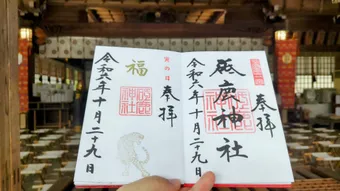 奉拝
砥鹿神社
令和六年十月二十九日
奉拝
寅の日
福
砥鹿神社
令和六年十月二十九日